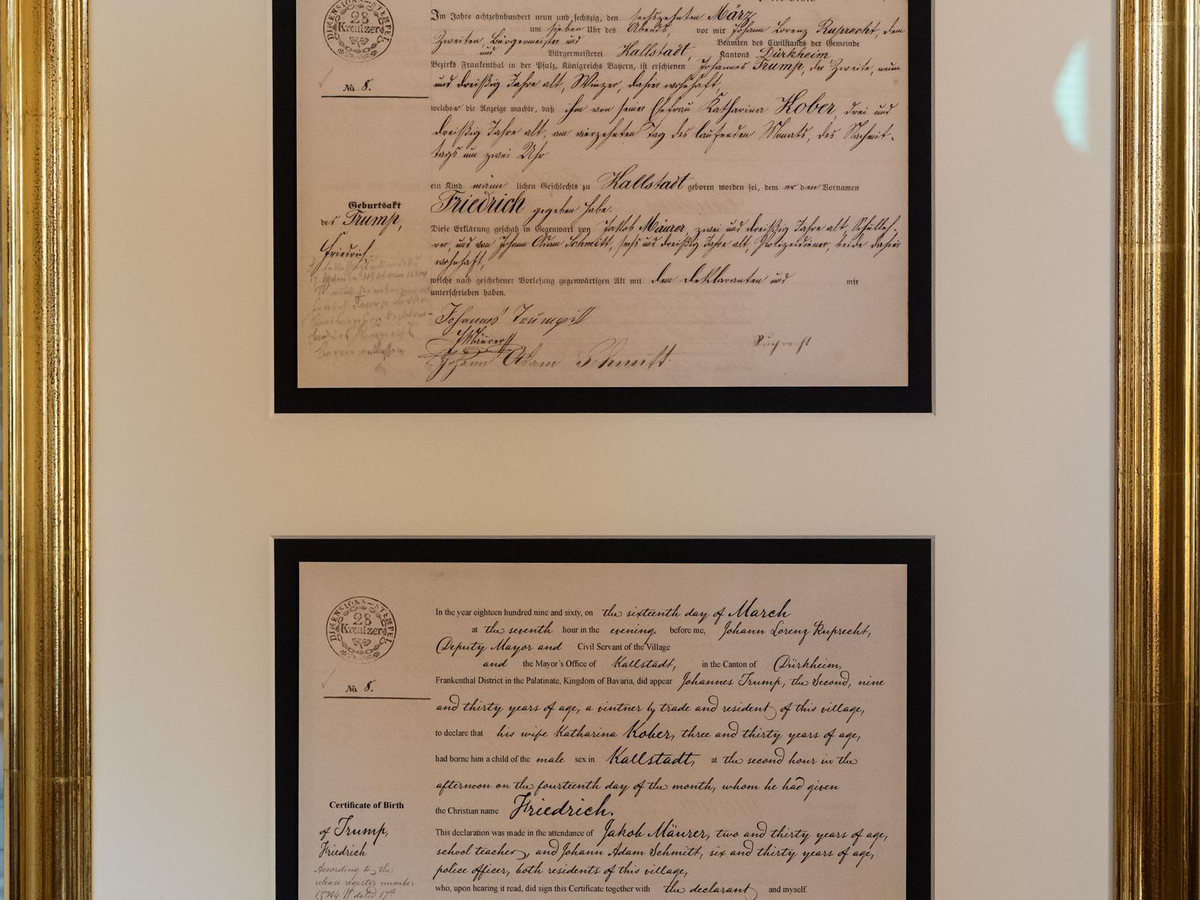 DIMENSIONS STEMPEL
28
Kreuzer
No. 8.
Im Jahre achtzehnhundert neun und sechszig, den sechszehnten März
um sieben Uhr des Abends, vor mir Johann Lorenz Ruprecht, dem
Zweiten Bürgermeister und Beamten des Civilstands der Gemeinde
und Bürgermeisterei Kallstadt Kantons Dürkheim
Bezirks Frankenthal in der Pfalz, Königreichs Bayern, ist erschienen Johannes Trump, der Zweite, neun
und dreißig Jahre alt, Winzer, daher wohnhaft,
welcher die Anzeige machte, daß ihm von seiner Ehefrau Katharina Kober, drei und
dreißig Jahre alt, am vierzehnten Tag des laufenden Monats, des Nachmit-
tags um zwei Uhr
ein Kind männlichen Geschlechts zu Kallstadt geboren worden sei, dem er den Vornamen
Friedrich gegeben habe.
Geburtsakt
des Trump,
Friedrich.
Diese Erklärung geschah in Gegenwart von Jakob Mäurer, zwei und dreißig Jahre alt, Schulleh-
rer, und von Johann Adam Schmitt, sechs und dreißig Jahre alt, Polizeidiener, beide daher
wohnhaft,
welche nach geschehener Vorlesung gegenwärtigen Akt mit dem Deklaranten und mir
unterschrieben haben.
Johannes Trump II
Mäurer
Johann Adam Schmitt
Ruprecht
DIMENSIONS STEMPEL
28
Kreuzer
No. 8.
In the year eighteen hundred nine and sixty, on the sixteenth day of March
at the seventh hour in the evening, before me, Johann Lorenz Ruprecht,
Deputy Mayor and Civil Servant of the Village
and the Mayor's Office of Kallstadt, in the Canton of Dürkheim,
Frankenthal District in the Palatinate, Kingdom of Bavaria, did appear Johannes Trump, the Second, nine
and thirty years of age, a vintner by trade and resident of this village,
to declare that his wife Katharina Kober, three and thirty years of age,
had borne him a child of the male sex in Kallstadt, at the second hour in the
afternoon on the fourteenth day of the month, whom he had given
the Christian name Friedrich.
Certificate of Birth
of Trump,
Friedrich
According to the
release register number
15264 II dated 17th
This declaration was made in the attendance of Jakob Mäurer, two and thirty years of age,
school teacher, and Johann Adam Schmitt, six and thirty years of age,
police officer, both residents of this village,
who, upon hearing it read, did sign this Certificate together with the declarant and myself.